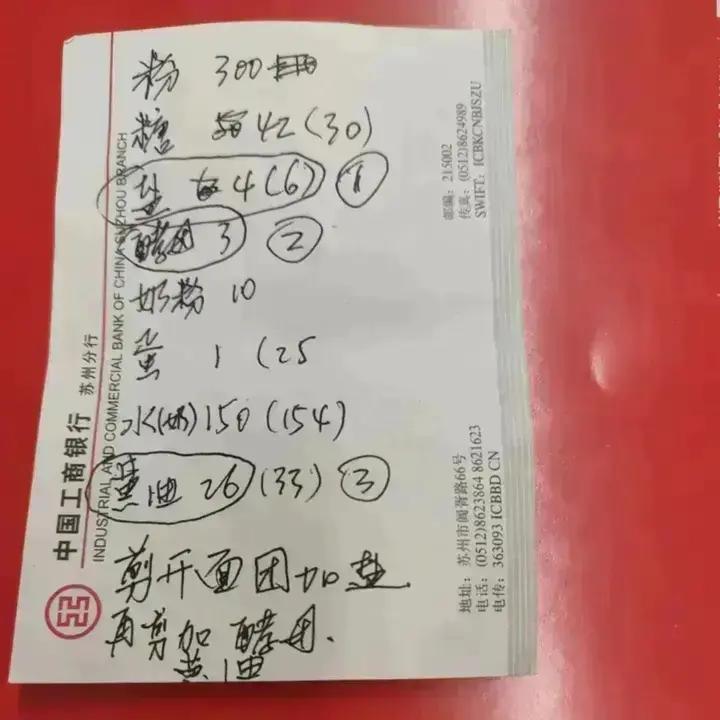 粉 300
糖 42(30)
盐 4(6) ①
酵母 3 ②
奶粉 10
蛋 1 (25
水(奶)150(154)
黄油 26(33) ③
剪开面团加盐.
再剪加酵母.
黄油
中国工商银行 苏州分行
INDUSTRIAL AND COMMERCIAL BANK OF CHINA SUZHOU BRANCH
地址: 苏州市阊胥路66号
电话: (0512)8623864 8621623
电传: 363093 ICBBD CN
邮编: 215002
传真: (0512)8624989
SWIFT: ICBKCNBJSZU